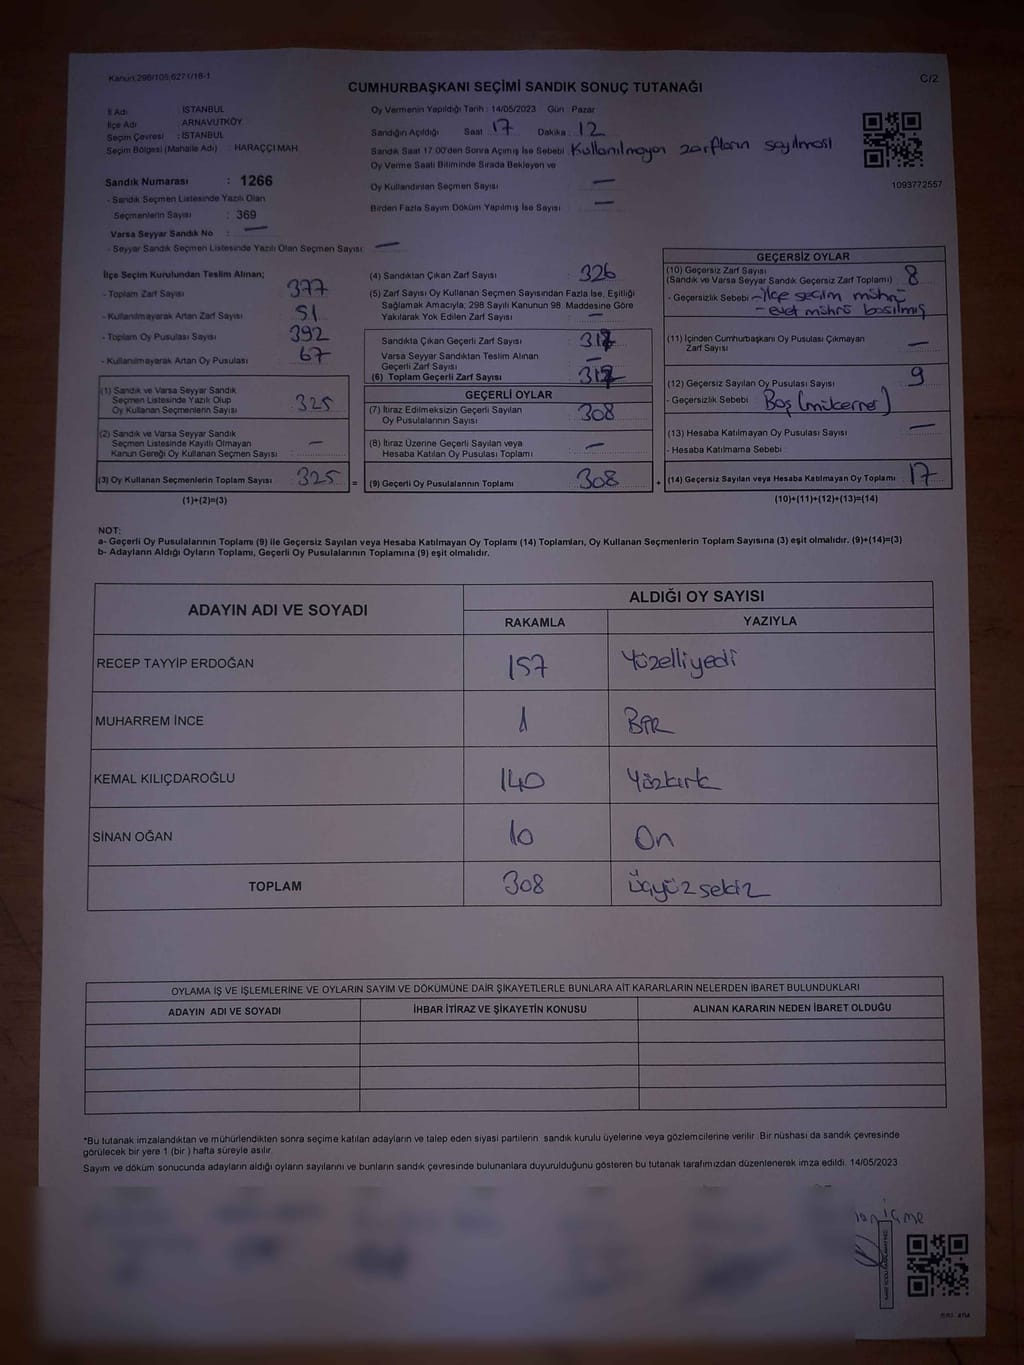 Kanun:298/105,6271/18-1
C/2
CUMHURBAŞKANI SEÇİMİ SANDIK SONUÇ TUTANAĞI
İl Adı : İSTANBUL
İlçe Adı : ARNAVUTKÖY
Seçim Çevresi : İSTANBUL
Seçim Bölgesi (Mahalle Adı) : HARAÇÇI MAH
Oy Vermenin Yapıldığı Tarih : 14/05/2023 Gün : Pazar
Sandığın Açıldığı Saat : 17 Dakika : 12
Sandık Saat 17:00'den Sonra Açımış İse Sebebi : Kullanılmayan zarfların sayılması
Oy Verme Saati Bitiminde Sırada Bekleyen ve
Oy Kullandırılan Seçmen Sayısı : —
Birden Fazla Sayım Döküm Yapılmış İse Sayısı : —
1093772557
Sandık Numarası : 1266
- Sandık Seçmen Listesinde Yazılı Olan
Seçmenlerin Sayısı : 369
Varsa Seyyar Sandık No : —
- Seyyar Sandık Seçmen Listesinde Yazılı Olan Seçmen Sayısı: —
İlçe Seçim Kurulundan Teslim Alınan;
- Toplam Zarf Sayısı : 377
- Kullanılmayarak Artan Zarf Sayısı : 51
- Toplam Oy Pusulası Sayısı : 392
- Kullanılmayarak Artan Oy Pusulası : 67
(1) Sandık ve Varsa Seyyar Sandık
Seçmen Listesinde Yazılı Olup
Oy Kullanan Seçmenlerin Sayısı : 325
(2) Sandık ve Varsa Seyyar Sandık
Seçmen Listesinde Kayıtlı Olmayan
Kanun Gereği Oy Kullanan Seçmen Sayısı : —
(3) Oy Kullanan Seçmenlerin Toplam Sayısı : 325 =
(1)+(2)=(3)
(4) Sandıktan Çıkan Zarf Sayısı : 326
(5) Zarf Sayısı Oy Kullanan Seçmen Sayısından Fazla İse, Eşitliği
Sağlamak Amacıyla, 298 Sayılı Kanunun 98. Maddesine Göre
Yakılarak Yok Edilen Zarf Sayısı : —
Sandıkta Çıkan Geçerli Zarf Sayısı : 317
Varsa Seyyar Sandıktan Teslim Alınan
Geçerli Zarf Sayısı : —
(6) Toplam Geçerli Zarf Sayısı : 317
GEÇERLİ OYLAR
(7) İtiraz Edilmeksizin Geçerli Sayılan
Oy Pusulalarının Sayısı : 308
(8) İtiraz Üzerine Geçerli Sayılan veya
Hesaba Katılan Oy Pusulası Toplamı : —
(9) Geçerli Oy Pusulalarının Toplamı : 308 +
GEÇERSİZ OYLAR
(10) Geçersiz Zarf Sayısı
(Sandık ve Varsa Seyyar Sandık Geçersiz Zarf Toplamı) : 8
- Geçersizlik Sebebi : - İlçe seçim mührü
- evet mührü basılmış
(11) İçinden Cumhurbaşkanı Oy Pusulası Çıkmayan
Zarf Sayısı : —
(12) Geçersiz Sayılan Oy Pusulası Sayısı : 9
- Geçersizlik Sebebi : Boş (mükerrer)
(13) Hesaba Katılmayan Oy Pusulası Sayısı : —
- Hesaba Katılmama Sebebi :
(14) Geçersiz Sayılan veya Hesaba Katılmayan Oy Toplamı : 17
(10)+(11)+(12)+(13)=(14)
NOT:
a- Geçerli Oy Pusulalarının Toplamı (9) ile Geçersiz Sayılan veya Hesaba Katılmayan Oy Toplamı (14) Toplamları, Oy Kullanan Seçmenlerin Toplam Sayısına (3) eşit olmalıdır. (9)+(14)=(3)
b- Adayların Aldığı Oyların Toplamı, Geçerli Oy Pusulalarının Toplamına (9) eşit olmalıdır.
ADAYIN ADI VE SOYADI ALDIĞI OY SAYISI
RAKAMLA YAZIYLA
RECEP TAYYİP ERDOĞAN 157 Yüzelliyedi
MUHARREM İNCE 1 BİR
KEMAL KILIÇDAROĞLU 140 Yüzkırk
SİNAN OĞAN 10 On
TOPLAM 308 Üçyüzsekiz
OYLAMA İŞ VE İŞLEMLERİNE VE OYLARIN SAYIM VE DÖKÜMÜNE DAİR ŞİKAYETLERLE BUNLARA AİT KARARLARIN NELERDEN İBARET BULUNDUKLARI
ADAYIN ADI VE SOYADI İHBAR İTİRAZ VE ŞİKAYETİN KONUSU ALINAN KARARIN NEDEN İBARET OLDUĞU
*Bu tutanak imzalandıktan ve mühürlendikten sonra seçime katılan adayların ve talep eden siyasi partilerin sandık kurulu üyelerine veya gözlemcilerine verilir. Bir nüshası da sandık çevresinde
görülecek bir yere 1 (bir ) hafta süreyle asılır.
Sayım ve döküm sonucunda adayların aldığı oyların sayılarını ve bunların sandık çevresinde bulunanlara duyurulduğunu gösteren bu tutanak tarafımızdan düzenlenerek imza edildi. 14/05/2023